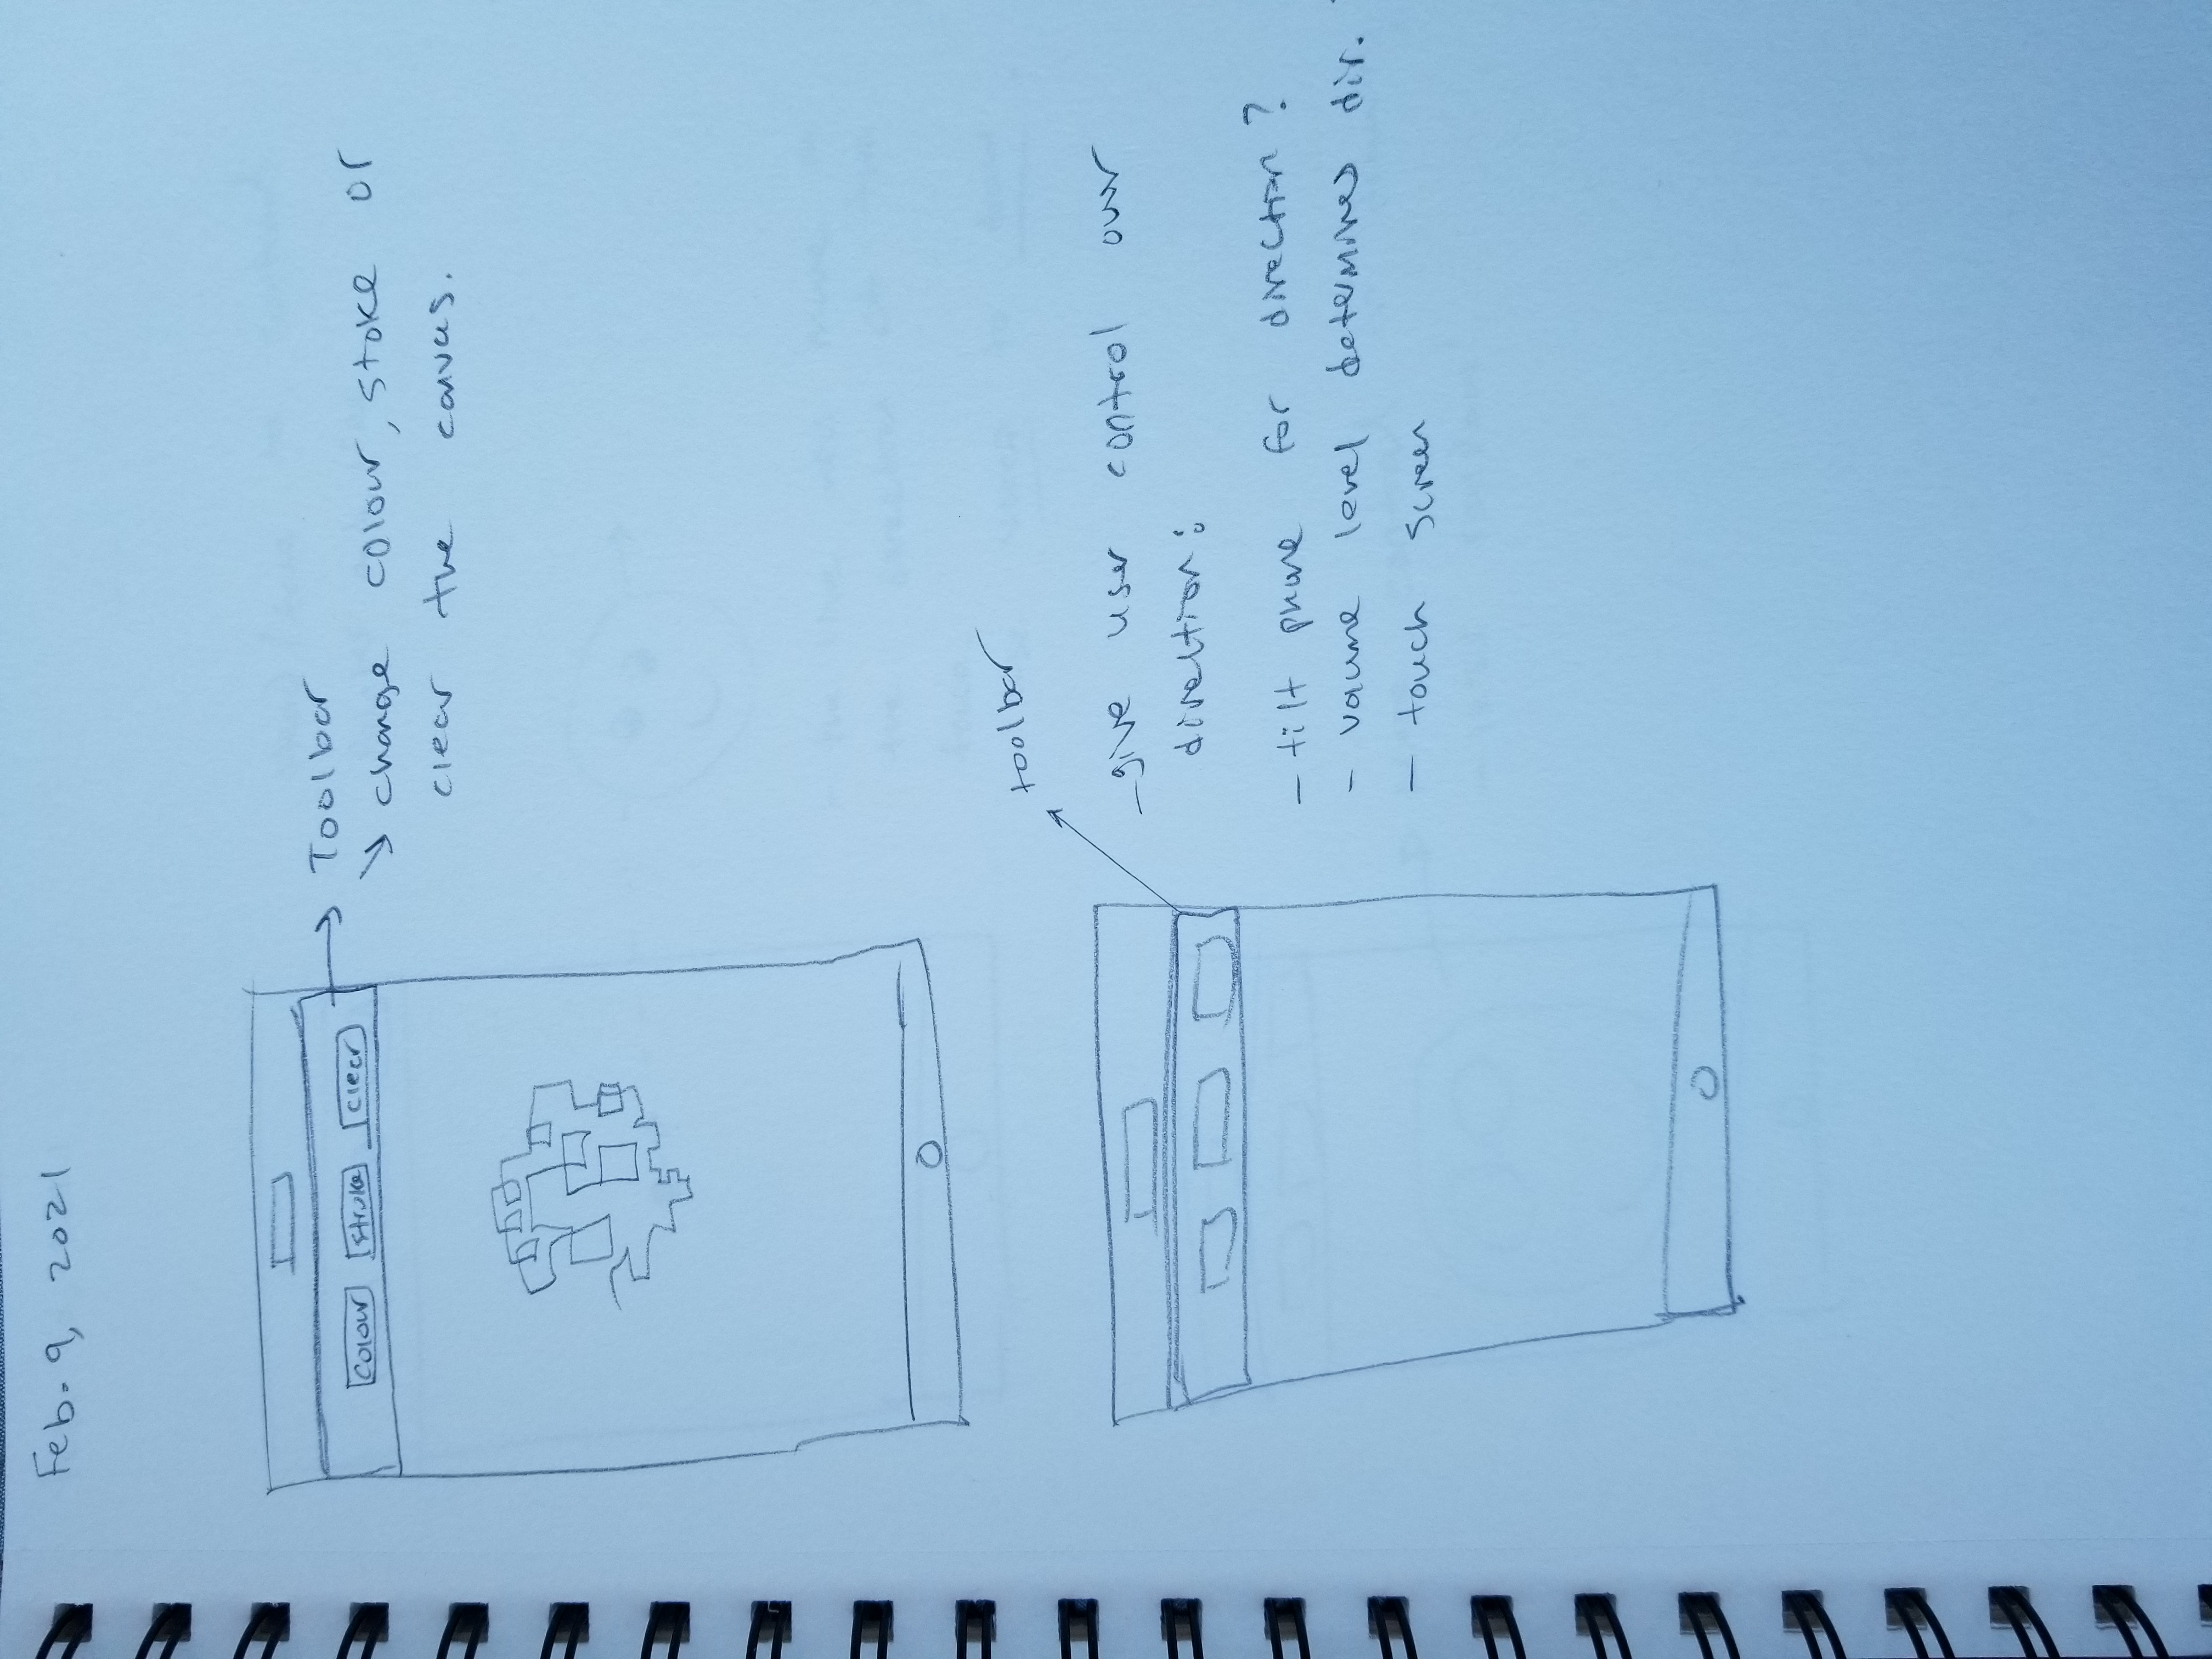 Feb. 9, 2021
Toolbar
colour stroke clear
change colour, stoke or
clear the canvas.
toolbar
- give user control over
direction:
- tilt phone for direction?
- voume level determines dir.
- touch screen